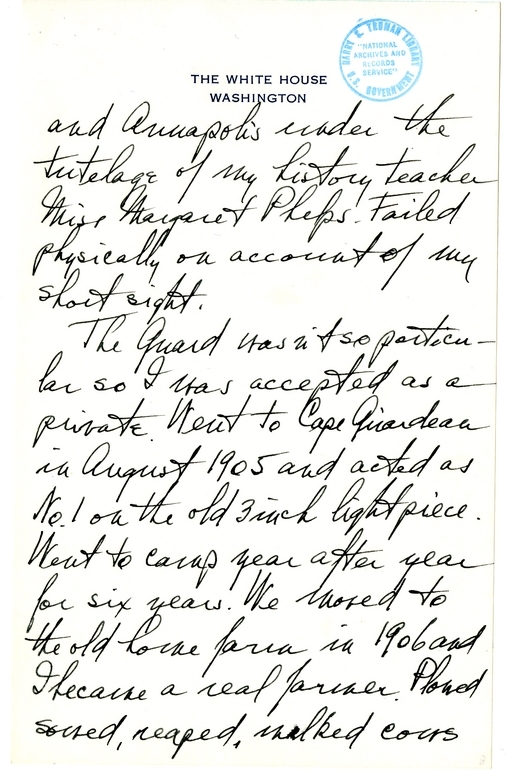 THE WHITE HOUSE
WASHINGTON
HARRY S. TRUMAN LIBRARY
"NATIONAL
ARCHIVES AND
RECORDS
SERVICE"
U.S. GOVERNMENT
and Annapolis under the
tutelage of my history teacher
Miss Margaret Phelps. Failed
physically on account of my
short sight.
The Guard wasn't so particu-
lar so I was accepted as a
private. Went to Cape Girardeau
in August 1905 and acted as
No. 1 on the old 3 inch light piece.
Went to camp year after year
for six years. We moved to
the old home farm in 1906 and
I became a real farmer. Plowed
sowed, reaped, milked cows